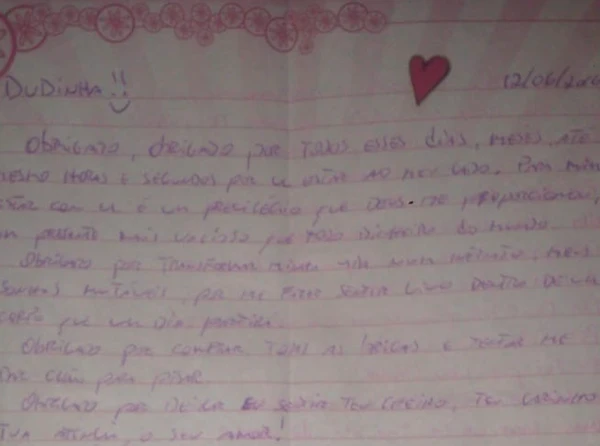 DUDINHA!! 12/06/20
OBRIGADO, OBRIGADO POR TODOS ESSES DIAS, MESES, ATÉ
MESMO HORAS E SEGUNDOS POR ESTAR AO MEU LADO. PARA MIM
ESTAR COM É UM PRIVILÉGIO QUE DEUS ME PROPORCIONOU,
UM PRESENTE MAIS VALIOSO QUE TODO DINHEIRO DO MUNDO
OBRIGADO POR TRANSFORMAR MINHA VIDA NUMA,
POR ME FAZER SENTIR VIVO DENTRO DE UM
CORPO QUE UM DIA
OBRIGADO POR COMPRAR TODAS AS E TENTAR ME
DAR CHÃO PARA PISAR
OBRIGADO POR DEIXAR EU SENTIR TEU CHEIRO, TEU CARINHO
TUA, O SEU AMOR!